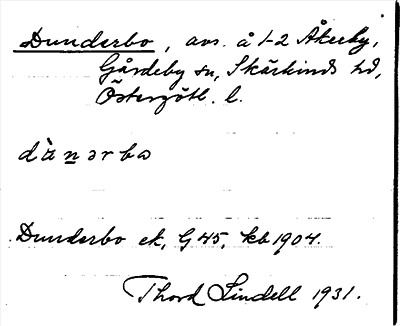 Dunderbo, avs. å 1-2 Åkerby,
Gårdeby sn, Skärkinds hd,
Östergötl. l.
dànərbo
Dunderbo ek, G 45, kb 1904.
Thord Lindell 1931.